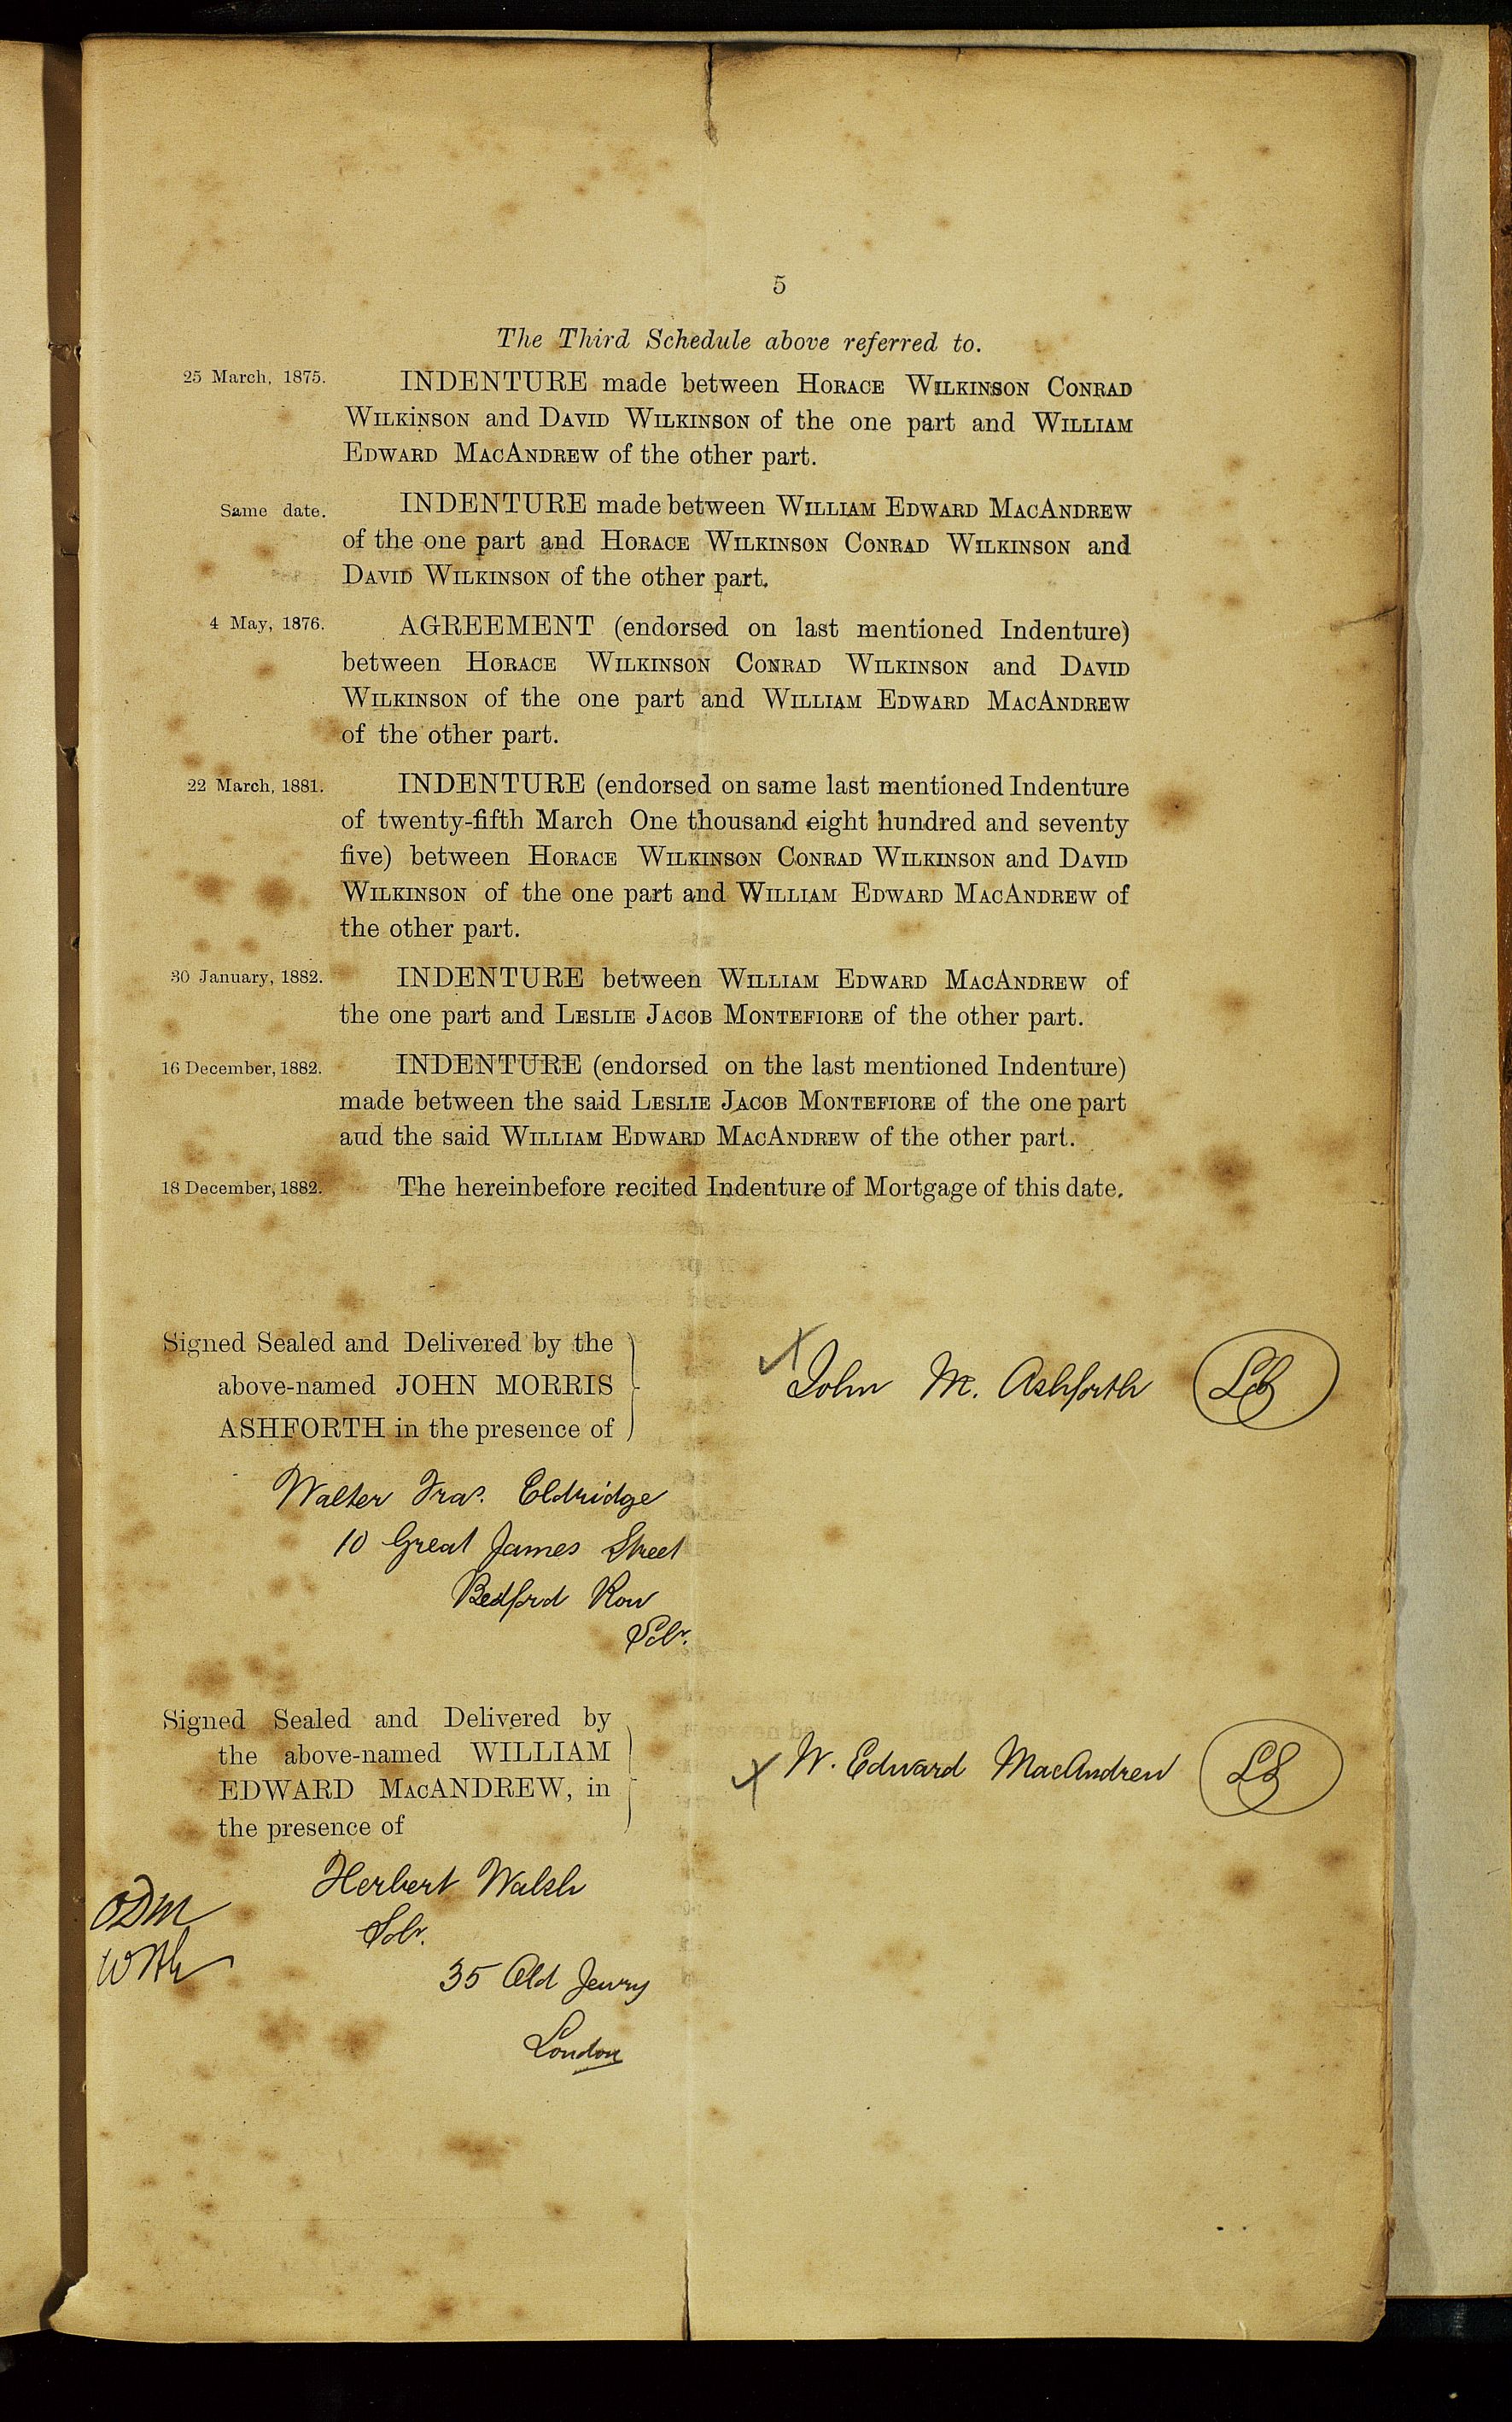 5
The Third Schedule above referred to.
25 March, 1875. INDENTURE made between Horace Wilkinson Conrad
Wilkinson and David Wilkinson of the one part and William
Edward MacAndrew of the other part.
Same date. INDENTURE made between William Edward MacAndrew
of the one part and Horace Wilkinson Conrad Wilkinson and
David Wilkinson of the other part.
4 May, 1876. AGREEMENT (endorsed on last mentioned Indenture)
between Horace Wilkinson Conrad Wilkinson and David
Wilkinson of the one part and William Edward MacAndrew
of the other part.
22 March, 1881. INDENTURE (endorsed on same last mentioned Indenture
of twenty-fifth March One thousand eight hundred and seventy
five) between Horace Wilkinson Conrad Wilkinson and David
Wilkinson of the one part and William Edward MacAndrew of
the other part.
30 January, 1882. INDENTURE between William Edward MacAndrew of
the one part and Leslie Jacob Montefiore of the other part.
16 December, 1882. INDENTURE (endorsed on the last mentioned Indenture)
made between the said Leslie Jacob Montefiore of the one part
aud the said William Edward MacAndrew of the other part.
18 December, 1882. The hereinbefore recited Indenture of Mortgage of this date.
Signed Sealed and Delivered by the
above-named JOHN MORRIS
ASHFORTH in the presence of
John M. Ashforth LS
Walter Fras. Eldridge
10 Great James Street
Bedford Row
Solr.
Signed Sealed and Delivered by
the above-named WILLIAM
EDWARD MacANDREW, in
the presence of
W. Edward MacAndrew LS
Herbert Walsh
Solr.
35 Old Jewry
London